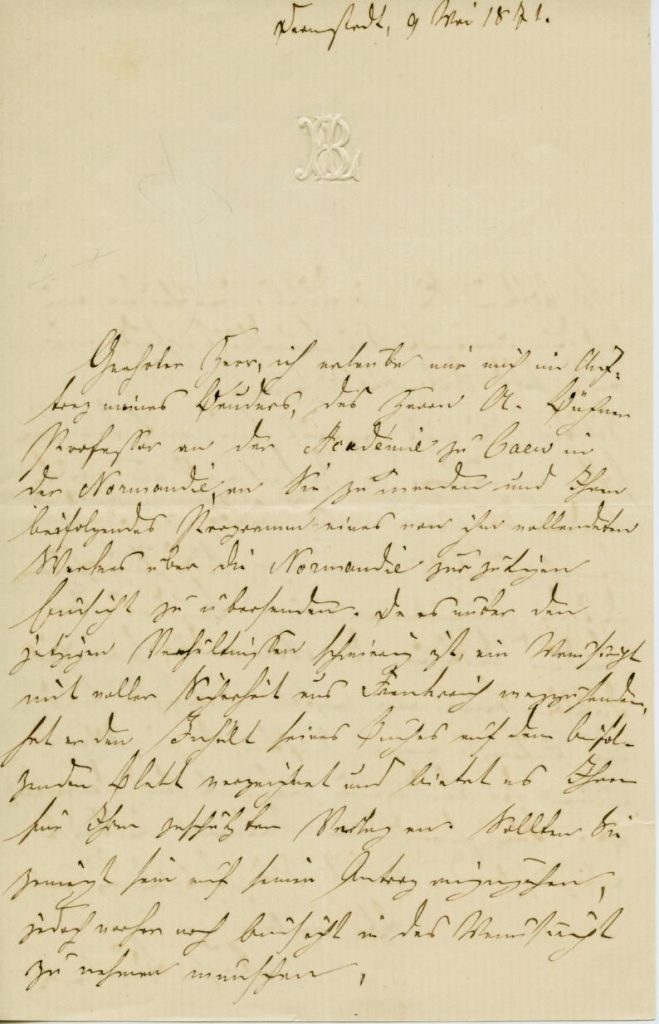 Darmstadt, 9 Mai 1871.
LB
Geehrter Herr, ich erlaube mir mich im Auf-
trag meines Bruders, des Herrn A. Büchner
Professor an der Académie zu Caen in
der Normandie, an Sie zu wenden und Ihnen
beifolgendes Programm eines von ihm vollendeten
Werkes über die Normandie zur gütigen
Einsicht zu übersenden. Da es unter den
jetzigen Verhältnissen schwierig ist, ein Manuscript
mit voller Sicherheit aus Frankreich wegzusenden,
hat er den Inhalt seines Buches auf dem beifol-
genden Blatt verzeichnet und bietet es Ihnen
für Ihren geschätzten Verlag an. Sollten Sie
geneigt sein auf seinen Antrag einzugehen,
jedoch vorher noch Einsicht in das Manuscript
zu nehmen wünschen,